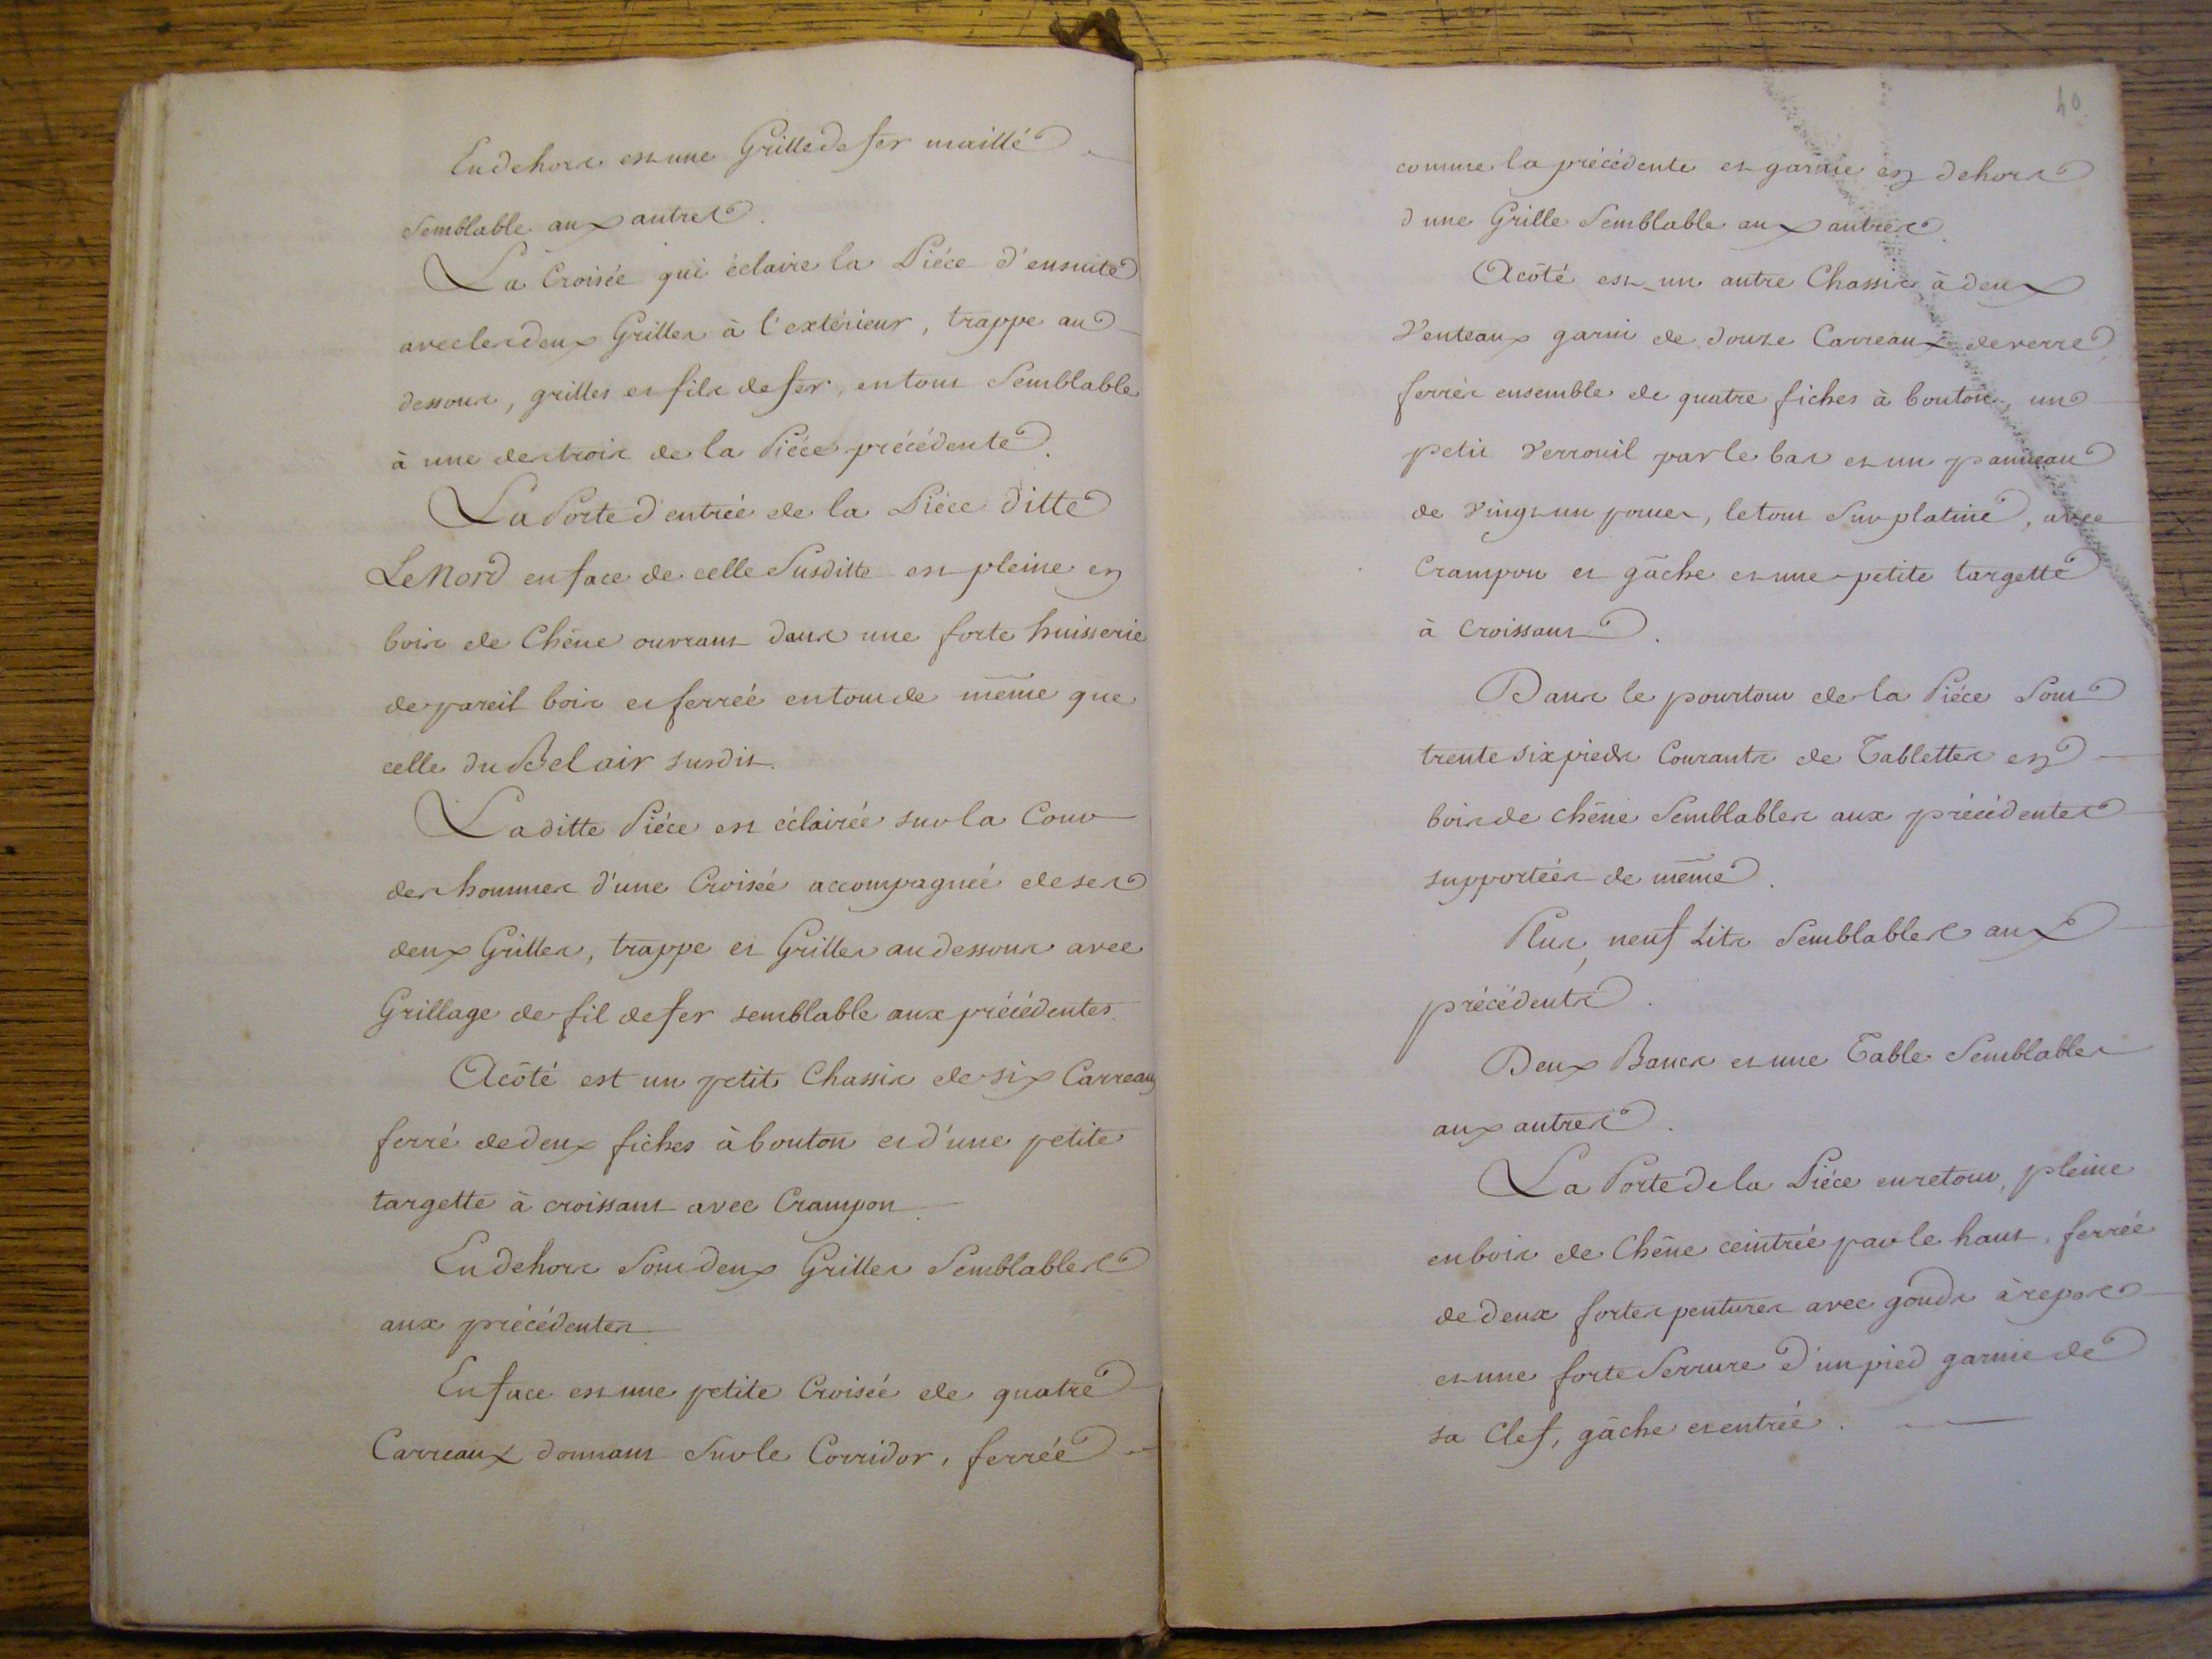 En dehors est une Grille de fer maillé
Semblable aux autres.
La Croisée qui éclaire la Piéce d'ensuite
avec les deux Grilles à l'extérieur, trappe au
dessous, grilles et fils de fer, en tout Semblable
à une des trois de la Piéce précédente.
La Porte d'entrée de la Piéce ditte
Le Nord en face de celle Susditte est pleine en
bois de Chêne ouvrant dans une forte huisserie
de pareil bois et ferrée en tout de même que
celle du Bel air susdit.
Laditte Piéce est éclairée sur la Cour
des hommes d'une Croisée accompagnée de ses
deux Grilles, trappe et Grilles au dessous avec
Grillage de fil de fer semblable aux précédentes.
Acôté est un petit Chassis de six Carreaux
ferré de deux fiches à bouton et d'une petite
targette à croissant avec Crampon.
En dehors Sont deux Grilles Semblables
aux précédentes.
En face est une petite Croisée de quatre
Carreaux donnant Sur le Corridor, ferrée
40
comme la précédente et garnie en dehors
d'une Grille Semblable aux autres.
Acôté est un autre Chassis à deux
Venteaux garni de douze Carreaux de verre
ferrés ensemble de quatre fiches à bouton, un
petit Verrouil par le bas et un panneau
de Vingt un pouces, le tout Sur platine, avec
Crampon et gâche et une petite targette
à Croissant.
Dans le pourtour de la Piéce Sont
trente six pieds Courants de Tablettes en
bois de chêne Semblables aux précédentes
supportées de même.
Plus, neuf Lits Semblables aux
précédents.
Deux Bancs et une Table Semblables
aux autres.
La Porte de la Piéce en retour, pleine
en bois de Chêne ceintrée par le haut, ferrée
de deux fortes pentures avec gonds à repos
et une forte Serrure d'un pied garnie de
sa Clef, gâche et entrée.